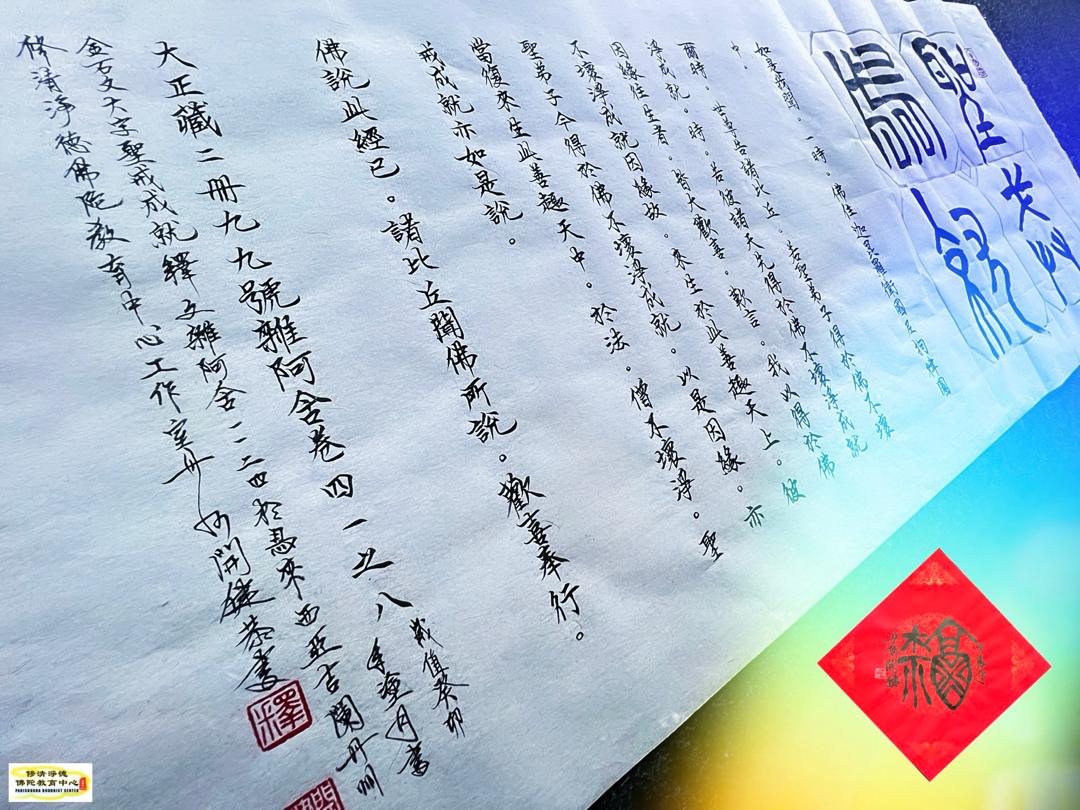 聖戒
成就
如是我聞。一時。佛住迦毘羅衛國尼拘律園
中。
爾時。世尊告諸比丘。若聖弟子得於佛不壞
淨成就。時。若彼諸天先得於佛不壞淨成就
因緣往生者。皆大歡喜。歎言。我以得於佛
不壞淨成就因緣故。來生於此善趣天上。彼
聖弟子今得於佛不壞淨成就。以是因緣。亦
當復來生此善趣天中。於法。僧不壞淨。聖
戒成就亦如是說。
佛說此經已。諸比丘聞佛所說。歡喜奉行。
大正藏二冊九九號雜阿含卷四一之八
歲值癸卯
年 月書
金石文大字聖戒成就釋文雜阿含一一二四於馬來西亞吉蘭丹州
修清淨德佛陀教育中心工作室丹州開鍵恭書
釋
福
修清淨德
佛陀教育中心
PARISUDDHA BUDDHIST CENTER